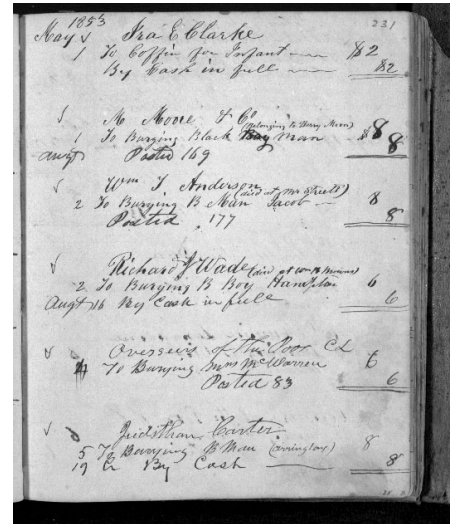 1853 231
May √ Ira E Clarke
1 To Coffin for Infant $2
By Cash in full $2
√ M Moore & Co
(belonging to Henry Moon)
1 To Burying Black Man $8
8
Augt Posted 169
√ Wm J Anderson
(died at Mr Streets)
2 To Burying B Man Jacob 8
Posted 177 8
√ Richard J Wade (died at Wm B
2 To Burying B Boy Hampton 6
Augt 16 By Cash in full 6
√ Overseers of the Poor C
To Burying Mrs McWarren 6
Posted 83 6
√ Carter
5 To Burying B Man (Arrington) 8
19 Cr By Cash 8